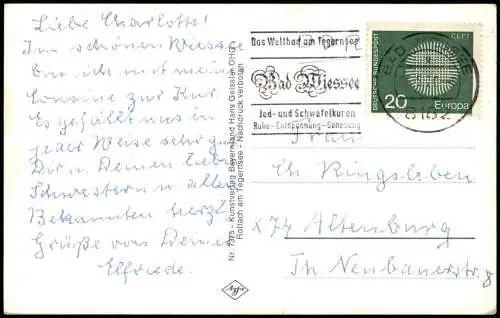 Liebe Charlotte!
Im schönen Wiessee
bin ich mit meiner
Cousine zur Kur.
Es gefällt uns in
jeder Weise sehr gut
Dir u. Deinen lieben
Schwestern u. allen
Bekannten herzl.
Grüße von Deiner
Elfriede.
Nr. 7375 - Kunstverlag Bayernland Hans Geissler OHG
Rottach am Tegernsee - Nachdruck verboten
Das Weltbad am Tegernsee
Bad Wiessee
Jod- und Schwefelkuren
Ruhe - Entspannung - Genesung
CEPT
DEUTSCHE BUNDESPOST
20 Europa
BAD WIESSEE
8182
Frau
Ch. Ringsleben
X 74 Altenburg
Th. Neubauerstr. 8